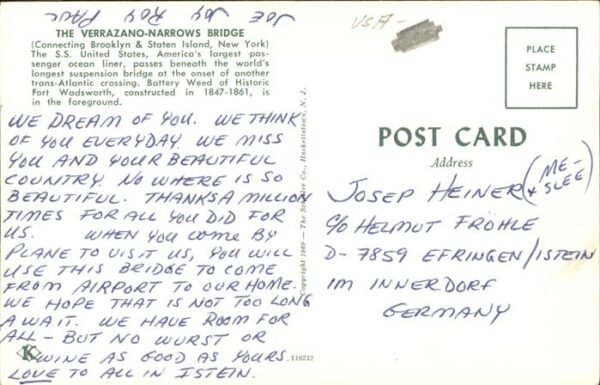 JOE JOY ROY PAUL
THE VERRAZANO-NARROWS BRIDGE
(Connecting Brooklyn & Staten Island, New York)
The S.S. United States, America's largest pas-
senger ocean liner, passes beneath the world's
longest suspension bridge at the onset of another
trans-Atlantic crossing. Battery Weed of Historic
Fort Wadsworth, constructed in 1847-1861, is
in the foreground.
WE DREAM OF YOU. WE THINK
OF YOU EVERYDAY. WE MISS
YOU AND YOUR BEAUTIFUL
COUNTRY. NO WHERE IS SO
BEAUTIFUL. THANKS A MILLION
TIMES FOR ALL YOU DID FOR
US. WHEN YOU COME BY
PLANE TO VISIT US, YOU WILL
USE THIS BRIDGE TO COME
FROM AIRPORT TO OUR HOME.
WE HOPE THAT IS NOT TOO LONG
A WAIT. WE HAVE ROOM FOR
ALL - BUT NO WURST OR
WINE AS GOOD AS YOURS.
LOVE TO ALL IN ISTEIN.
K
116212
Copyright 1969 — The Scheller Co., Hackettstown, N. J.
USA-
PLACE
STAMP
HERE
POST CARD
Address
JOSEP HEINER (ME-
+ SLEE)
C/O HELMUT FRÖHLE
D-7859 EFRINGEN/ISTEIN
IM INNERDORF
GERMANY